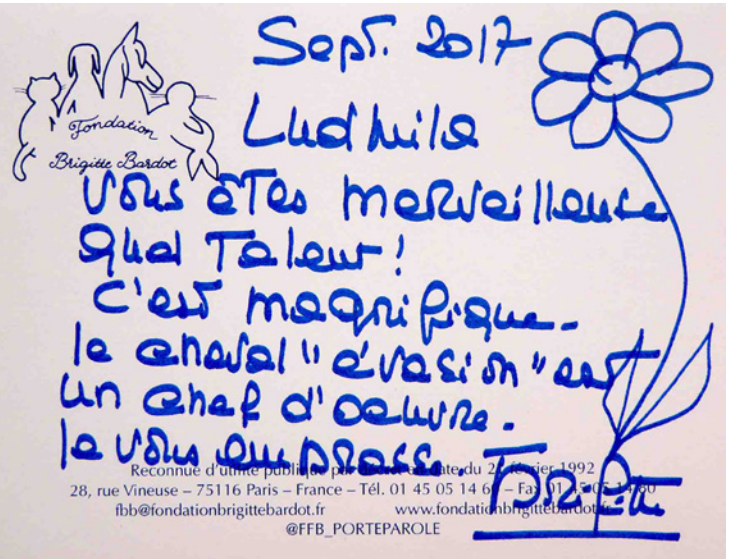 Sept. 2017
Fondation
Brigitte Bardot
Ludmila
Vous êtes merveilleuse
Quel Talent!
C'est magnifique.
le cheval "évasion" est
un chef d'oeuvre.
Je vous embrasse.
Reconnue d'utilité publique par décret en date du février 1992
28, rue Vineuse – 75116 Paris – France – Tél. 01 45 05 14 – Fax 01 45 05 14 80
fbb@fondationbrigittebardot.fr www.fondationbrigittebardot.fr
@FFB_PORTEPAROLE